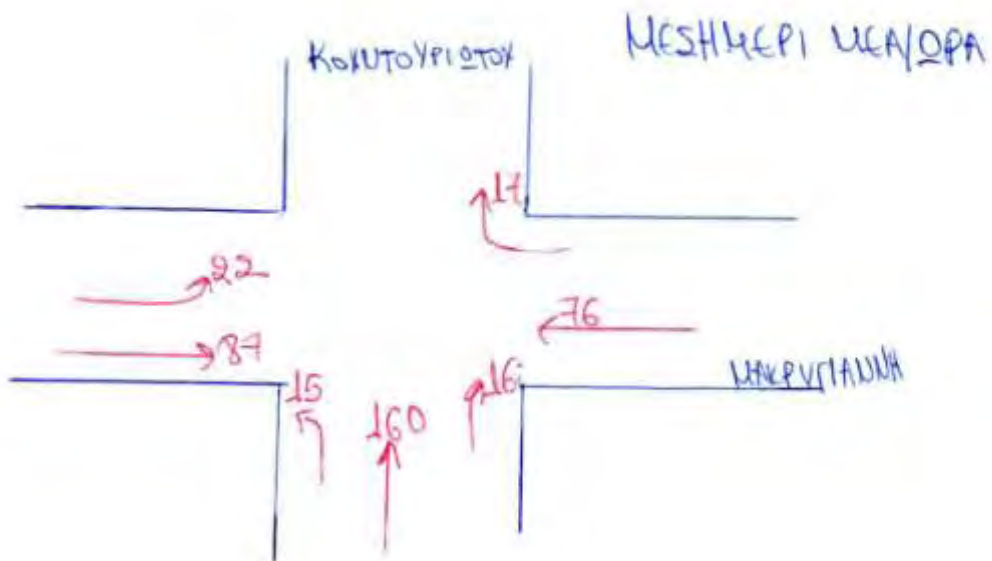 ΚΟΥΝΤΟΥΡΙΩΤΟΥ
ΜΕΣΗΜΕΡΙ ΜΕΑ/ΩΡΑ
17
22
76
87
ΜΑΚΡΥΓΙΑΝΝΗ
15
160
16